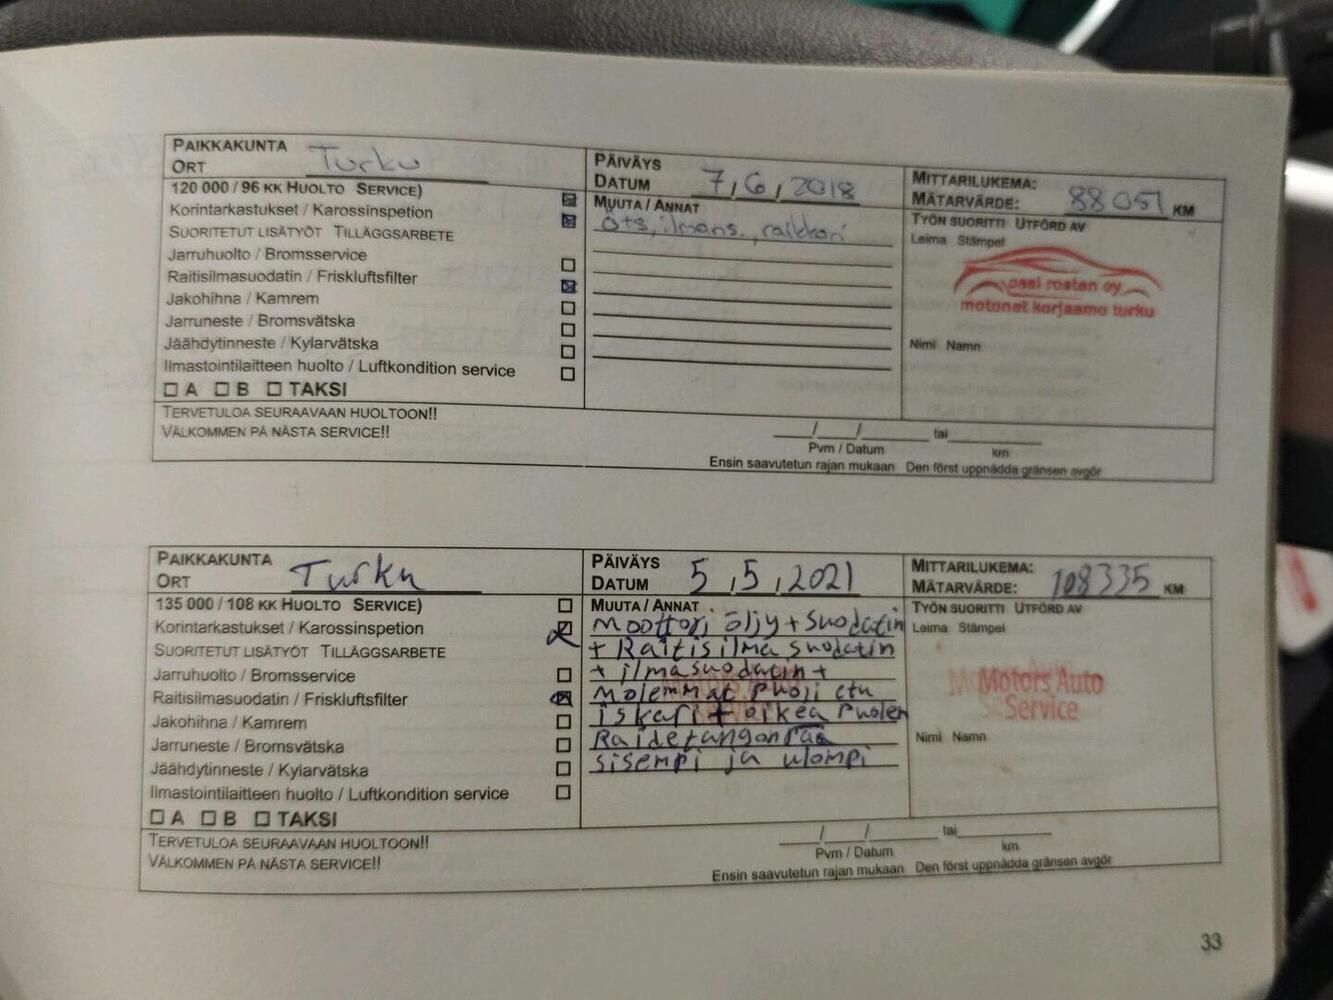 PAIKKAKUNTA
ORT Turku
PÄIVÄYS
DATUM 7, 6, 2018
MITTARILUKEMA:
MÄTARVÄRDE: 88051 KM
120 000 / 96 KK HUOLTO SERVICE)
Korintarkastukset / Karossinspetion
SUORITETUT LISÄTYÖT TILLÄGGSARBETE
Jarruhuolto / Bromsservice
Raitisilmasuodatin / Friskluftsfilter
Jakohihna / Kamrem
Jarruneste / Bromsvätska
Jäähdytinneste / Kylarvätska
Ilmastointilaitteen huolto / Luftkondition service
A B TAKSI
MUUTA / ANNAT
Öts, ilmans.,
TYÖN SUORITTI UTFÖRD AV
Leima Stämpel
pasi rosten oy
motonet korjaamo turku
Nimi Namn
TERVETULOA SEURAAVAAN HUOLTOON!!
VÄLKOMMEN PÅ NÄSTA SERVICE!!
/ / tai
Pvm / Datum km
Ensin saavutetun rajan mukaan Den först uppnådda gränsen avgör
PAIKKAKUNTA
ORT Turku
PÄIVÄYS
DATUM 5, 5, 2021
MITTARILUKEMA:
MÄTARVÄRDE: 108335 KM
135 000 / 108 KK HUOLTO SERVICE)
Korintarkastukset / Karossinspetion
SUORITETUT LISÄTYÖT TILLÄGGSARBETE
Jarruhuolto / Bromsservice
Raitisilmasuodatin / Friskluftsfilter
Jakohihna / Kamrem
Jarruneste / Bromsvätska
Jäähdytinneste / Kylarvätska
Ilmastointilaitteen huolto / Luftkondition service
A B TAKSI
MUUTA / ANNAT
Moottori öljy + Suodatin
+ Raitisilma suodatin
+ ilmasuodatin +
Molemmat Puoli etu
iskari + oikea Puolen
Raidetangon Pää
sisempi ja ulompi
TYÖN SUORITTI UTFÖRD AV
Leima Stämpel
Motors Auto
Service
Nimi Namn
TERVETULOA SEURAAVAAN HUOLTOON!!
VÄLKOMMEN PÅ NÄSTA SERVICE!!
/ / tai
Pvm / Datum km
Ensin saavutetun rajan mukaan Den först uppnådda gränsen avgör
33